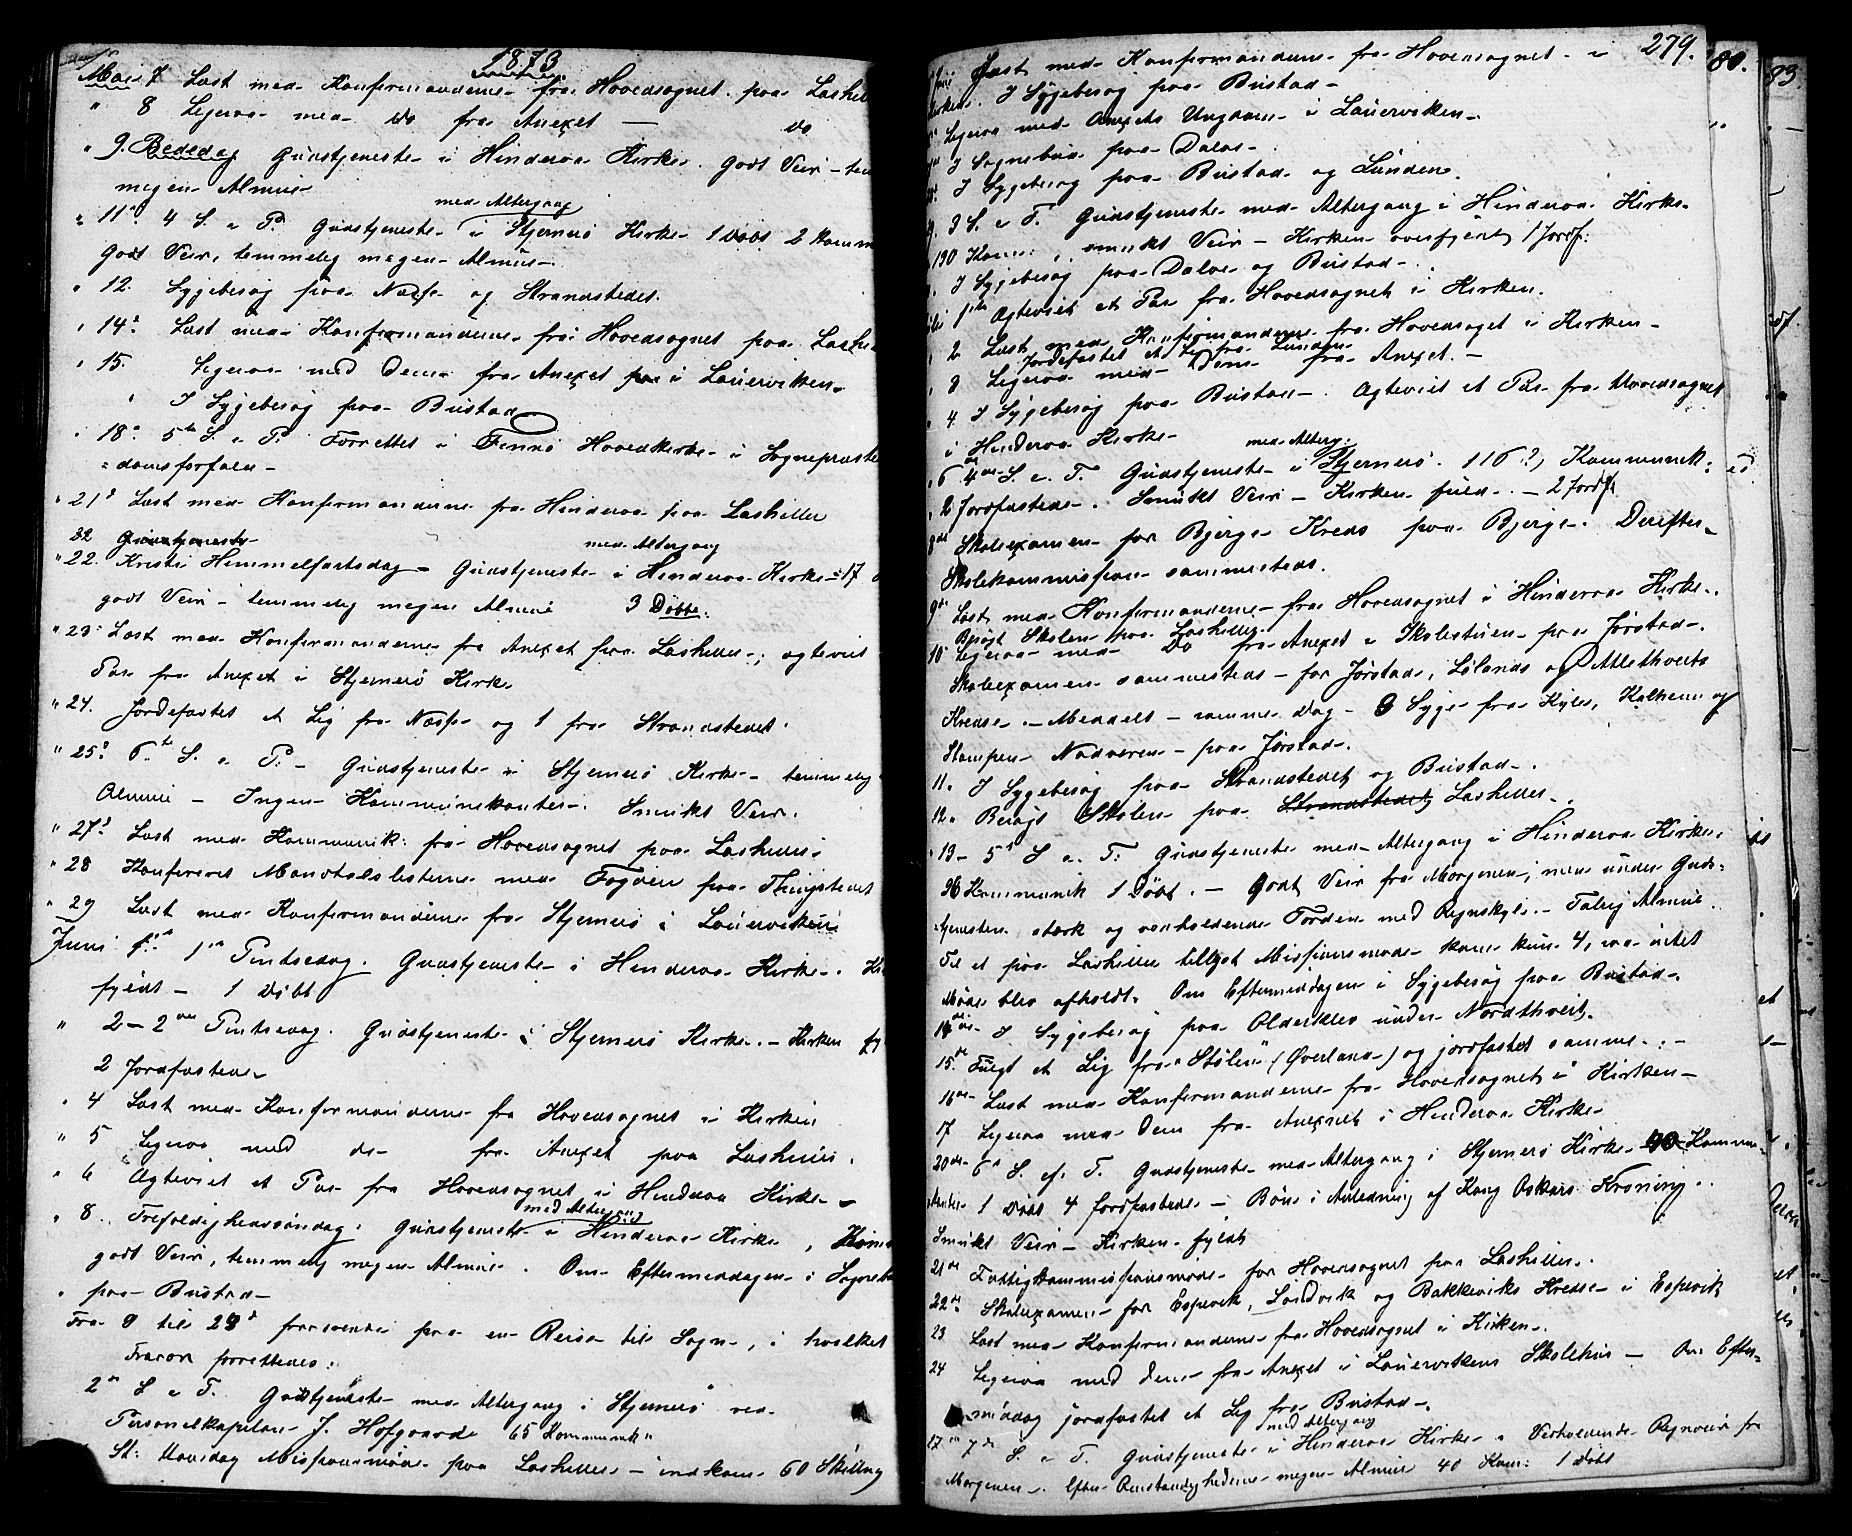 1873
Mai 7 Læst med Konfirmanderne fra Hovedsognet paa Lashell
" 8 Ligesaa med do fra Anexet — do
" 9. Bededag Gudstjeneste i Hinderaa Kirke. Godt Veir – tem
megen Almue
med Altergang
" 11te 4 S. e. P. Gudstjeneste i Stjernerö Kirke 1 Döbt 2 Komm
Godt Veir, temmelig megen Almue.
" 12. Sygebesög paa Næsse og Strandstedet.
" 14de Læst med Konfirmanderne fra Hovedsognet paa Lashe
" 15. Ligesaa med Dem fra Anexet i Lauervikens
" I Sygebesög paa Bustad
" 18de 5te S. e. P. Forrettet i Finnö Hovedkirke i Sognepræste
=domsforfald
" 21de Læst med Konfirmanderne fra Hinderaa paa Lasheller
22 Gudstjeneste
med Altergang
" 22. Kristi Himmelfartsdag – Gudstjeneste i Hinderaa Kirke – 17
godt Veir – temmelig megen Almue 3 Döbte.
" 23. Læst med Konfirmanderne fra Anexet paa Lasheller, agteviet
Par fra Anexet i Stjernerö Kirke
" 24. Jordfæstet et Lig fra Næsse og 1 fra Strandstedet.
" 25de 6te S. e. P. – Gudstjeneste i Stjernerö Kirke – temmelig
Almue – Ingen Kommunikanter. Smukt Veir.
" 27de Læst med Kommunik: fra Hovedsognet paa Lasheller
" 28 Konfereret Mandtalslisterne med Fogden paa Thingstedet
" 29 Læst med Konfirmanderne fra Stjernerö i Lauerviken
Juni 1ste 1ste Pintsedag. Gudstjeneste i Hinderaa Kirke. Ki
fyldt – 1 Döbt
" 2 – 2den Pintsedag. Gudstjeneste i Stjernerö Kirke. – Kirken fy
2 Jordfæstede
" 4 Læst med Konfirmanderne fra Hovedsognet i Kirken
" 5 Ligesaa med do fra Anexet paa Lasheller.
" 6 Agteviet et Par fra Hovedsognet i Hinderaa Kirke –
med Altergang
" 8 Trefoldighedssöndag. Gudstjeneste i Hinderaa Kirke, Kom
godt Veir, temmelig megen Almue. Om Eftermiddagen i Sogneb
" paa Bustad
Fra 9 til 29de fraværende paa en Reise til Sogn, i hvilket
Fravær forrettedes:
2den S. e. T. Gudstjeneste med Altergang i Stjernerö ved
Personelkapellan J. Hofgaard 65 Kommunik
St: Hansdag Missionsmöde paa Lasheller – indkom 60 Skilling
279.
80.
83.
Læst med Konfirmanderne fra Hovedsognet i
Kirken. I Sygebesög paa Bustad
Ligesaa med Anexets Ungdom i Lauerviken.
I Sognebud paa Dalve.
I Sygebesög paa Bustad og Lunden.
3 S. e. T. Gudstjeneste med Altergang i Hinderaa Kirke
130 Kom: smukt Veir – Kirken overfyldt 1 Jordf:
I Sygebesög paa Dalve og Bustad.
1ste Agteviet et Par fra Hovedsognet i Kirken.
2 Læst med Konfirmanderne fra Hovedsognet i Kirken –
Jordfæstet et Lig fra Lunden
8 Ligesaa med Dem fra Anexet. –
4 I Sygebesög paa Bustad. Agteviet et Par fra Hovedsognet
i Hinderaa Kirke
med Alterg:
6 4de S. e. T. Gudstjeneste i Stjernerö. 116 Kommunik:
2 Jordfæstede. Smukt Veir – Kirken fuld. – 2 Jordf
8de Skoleexamen for Bjerge Kreds paa Bjerge. Derefter
Skolekommission sammesteds.
9de Læst med Konfirmanderne fra Hovedsognet i Hinderaa Kirke.
Besögt Skolen paa Lasheller
10 Ligesaa med Do fra Anexet i Skolestuen paa Jörstad.
Skoleexamen sammesteds – for Jörstad, Lölands og Atlethveits
Kredse. – Meddelt samme Dag 3 Syge fra Kyles, Kalhem og
Stampen Nadveren – paa Jörstad.
11. I Sygebesög paa Strandstedet og Bustad.
12. Besögt Skolen paa Strandstedet Lasheller.
13 – 5te S e. T. Gudstjeneste med Altergang i Hinderaa Kirke.
36 Kommunik 1 Döbt. – Godt Veir fra Morgenen, men under Guds-
tjenesten stærk og vedholdende Torden med Regnskyl. – Talrig Almue.
Til et paa Lasheller tillyst Missionsmöde kom kun 4, saa intet
Möde blev afholdt. Om Eftermiddagen i Sygebesög paa Bustad.
14de I Sygebesög paa Olderklev under Nordthveit.
15de Fulgt et Lig fra "Stölen" (Överland) og jordfæstet samme. –
16de Læst med Konfirmanderne fra Hovedsognet i Kirken –
17 Ligesaa med Dem fra Anexet i Hinderaa Kirke
20de 6te S. e. T. Gudstjeneste med Altergang i Stjernerö Kirke 40 Kommu-
nikanter 1 Döbt 4 Jordfæstede – Bön i Anledning af Kong Oskars Kroning.
Smukt Veir – Kirken fyldt
21de Fattigkommissionsmöde for Hovedsognet paa Lasheller.
22de Skoleexamen for Espevik, Sandvik og Bakkeviks Kredse i Espevik
23 Læst med Konfirmanderne fra Hovedsognet i Kirken.
24 Ligesaa med Dem fra Anexet i Lauervikens Skolehus – Om Efter-
middag jordfæstet et Lig fra Bustad.
med Altergang
27 7de S. e. T. Gudstjeneste i Hinderaa Kirke. Vedholdende Regnveir fra
Morgenen. Efter Omstændighederne megen Almue 40 Kom: 1 Döbt